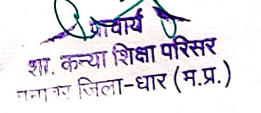 प्राचार्य
शा. कन्या शिक्षा परिसर
जिला-धार (म.प्र.)